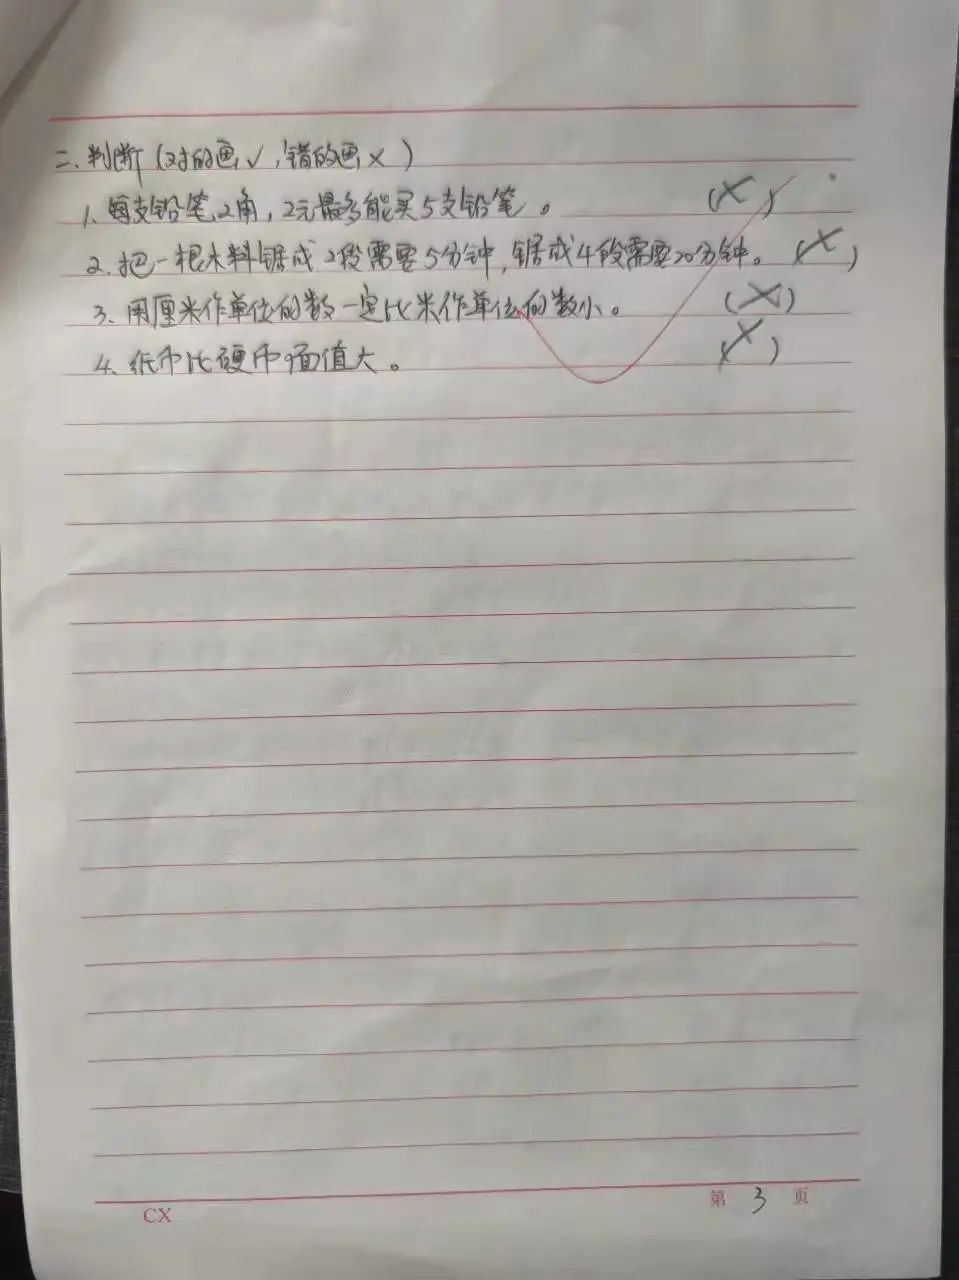 二、判断（对的画√,错的画×）
1、每支铅笔2角，2元最多能买5支铅笔。 (×)
2、把一根木料锯成2段需要5分钟,锯成4段需要20分钟。 (×)
3、用厘米作单位的数一定比米作单位的数小。 (×)
4、纸币比硬币面值大。 (×)
CX 第 3 页